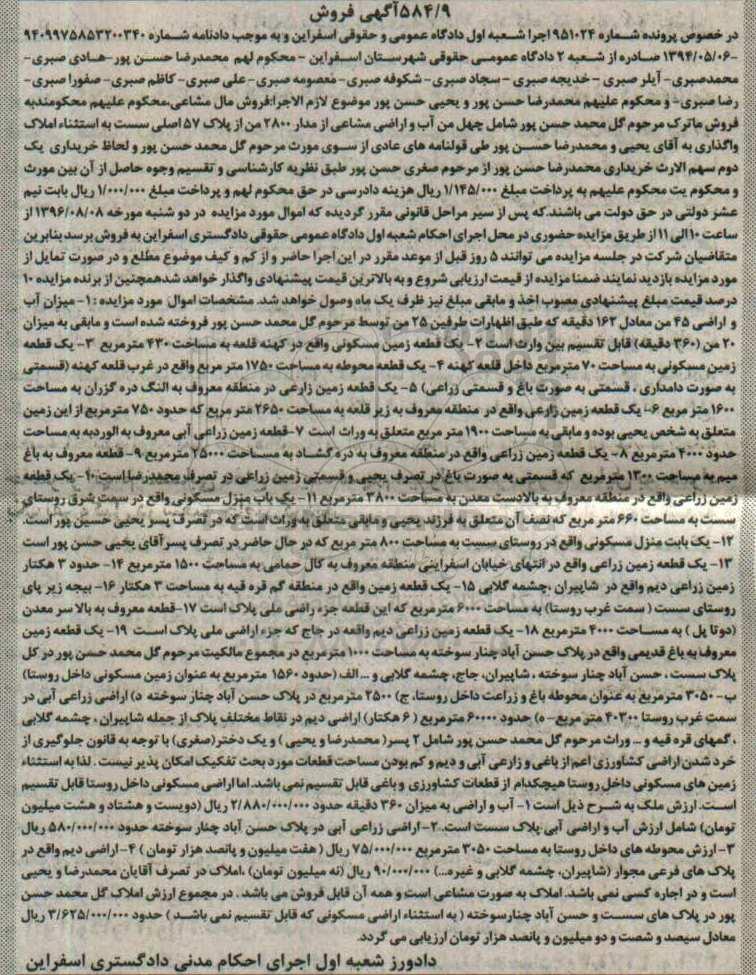 ۵۸۴/۹آگهی فروش
در خصوص پرونده شماره ۹۵۱۰۲۴ اجرا شعبه اول دادگاه عمومی و حقوقی اسفراین و به موجب دادنامه شماره ۹۴۰۹۹۷۵۸۵۳۲۰۰۳۴۰
-۱۳۹۴/۰۵/۰۶ صادره از شعبه ۲ دادگاه عمومی حقوقی شهرستان اسفراین - محکوم لهم محمدرضا حسن پور-هادی صبری-
محمدصبری- آیلر صبری - خدیجه صبری - سجاد صبری- شکوفه صبری- معصومه صبری- علی صبری- کاظم صبری- صفورا صبری-
رضا صبری- و محکوم علیهم محمدرضا حسن پور و یحیی حسن پور موضوع لازم الاجرا:فروش مال مشاعی،محکوم علیهم محکومندبه
فروش ماترک مرحوم گل محمد حسن پور شامل چهل من آب و اراضی مشاعی از مدار ۲۸۰۰ من از پلاک ۵۷ اصلی سست به استثناء املاک
واگذاری به آقای یحیی و محمدرضا حسن پور طی قولنامه های عادی از سوی مورث مرحوم گل محمد حسن پور و لحاظ خریداری یک
دوم سهم الارث خریداری محمدرضا حسن پور از مرحوم صغری حسن پور طبق نظریه کارشناسی و تقسیم وجوه حاصل از آن بین مورث
و محکوم یت محکوم علیهم به پرداخت مبلغ ۱/۱۴۵/۰۰۰ ریال هزینه دادرسی در حق محکوم لهم و پرداخت مبلغ ۱/۰۰۰/۰۰۰ ریال بابت نیم
عشر دولتی در حق دولت می باشند.که پس از سیر مراحل قانونی مقرر گردیده که اموال مورد مزایده در دو شنبه مورخه ۱۳۹۶/۰۸/۰۸ از
ساعت ۱۰ الی ۱۱ از طریق مزایده حضوری در محل اجرای احکام شعبه اول دادگاه عمومی حقوقی دادگستری اسفراین به فروش برسد بنابرین
متقاضیان شرکت در جلسه مزایده می توانند ۵ روز قبل از موعد مقرر در این اجرا حاضر و از کم و کیف موضوع مطلع و در صورت تمایل از
مورد مزایده بازدید نمایند ضمنا مزایده از قیمت ارزیابی شروع و به بالاترین قیمت پیشنهادی واگذار خواهد شدهمچنین از برنده مزایده ۱۰
درصد قیمت مبلغ پیشنهادی مصوب اخذ و مابقی مبلغ نیز ظرف یک ماه وصول خواهد شد. مشخصات اموال مورد مزایده : ۱- میزان آب
و اراضی ۴۵ من معادل ۱۶۲ دقیقه که طبق اظهارات طرفین ۲۵ من توسط مرحوم گل محمد حسن پور فروخته شده است و مابقی به میزان
۲۰ من (۳۶۰ دقیقه) قابل تقسیم بین وراث است ۲- یک قطعه زمین مسکونی واقع در کهنه قلعه به مساحت ۴۳۰ مترمربع ۳- یک قطعه
زمین مسکونی به مساحت ۷۰ مترمربع داخل قلعه کهنه ۴- یک قطعه محوطه به مساحت ۱۷۵۰ متر مربع واقع در غرب قلعه کهنه (قسمتی
به صورت دامداری ، قسمتی به صورت باغ و قسمتی زراعی) ۵- یک قطعه زمین زارعی در منطقه معروف به النگ دره گزران به مساحت
۱۶۰۰ متر مربع ۶- یک قطعه زمین زارعی واقع در منطقه معروف به زیر قلعه به مساحت ۲۶۵۰ متر مربع که حدود ۷۵۰ مترمربع از این زمین
متعلق به شخص یحیی بوده و مابقی به مساحت ۱۹۰۰ متر مربع متعلق به وراث است ۷-قطعه زمین زراعی آبی معروف به الوردبه به مساحت
حدود ۴۰۰۰ مترمربع ۸- یک قطعه زمین زراعی واقع در منطقه معروف به دره گشاد به مساحت ۲۵۰۰۰ مترمربع ۹- قطعه معروف به باغ
میم به مساحت ۱۳۰۰ مترمربع که قسمتی به صورت باغ در تصرف یحیی و قسمتی زمین زراعی در تصرف محمدرضا است ۱۰- یک قطعه
زمین زراعی واقع در منطقه معروف به بالادست معدن به مساحت ۳۸۰۰ مترمربع ۱۱- یک باب منزل مسکونی واقع در سمت شرق روستای
سست به مساحت ۶۶۰ متر مربع که نصف آن متعلق به فرزند یحیی و مابقی متعلق به وراث است که در تصرف پسر یحیی حسین پور است.
۱۲- یک بابت منزل مسکونی واقع در روستای سست به مساحت ۸۰۰ متر مربع که در حال حاضر در تصرف پسرآقای یحیی حسن پور است
۱۳- یک قطعه زمین زراعی واقع در انتهای خیابان اسفراینی منطقه معروف به کال حمامی به مساحت ۱۵۰۰ مترمربع ۱۴- حدود ۳ هکتار
زمین زراعی دیم واقع در شاپیران ،چشمه گلابی ۱۵- یک قطعه زمین واقع در منطقه گم قره قیه به مساحت ۳ هکتار ۱۶- بیجه زیر پای
روستای سست ( سمت غرب روستا) به مساحت ۶۰۰۰ مترمربع که این قطعه جزء راضی ملی پلاک است ۱۷-قطعه معروف به بالا سر معدن
(دوتا پل ) به مساحت ۴۰۰۰ مترمربع ۱۸- یک قطعه زمین زراعی دیم واقعه در جاج که جزء اراضی ملی پلاک است ۱۹- یک قطعه زمین
معروف به باغ قدیمی واقع در پلاک حسن آباد چنار سوخته به مساحت ۱۰۰۰ مترمربع در مجموع مالکیت مرحوم گل محمد حسن پور در کل
پلاک سست ، حسن آباد چنار سوخته ، شاپیران، جاج، چشمه گلابی و ... الف (حدود ۱۵۶۰ مترمربع به عنوان زمین مسکونی داخل روستا)
ب- ۳۰۵۰ مترمربع به عنوان محوطه باغ و زراعت داخل روستا، ج) ۲۵۰۰ مترمربع در پلاک حسن آباد چنار سوخته د) اراضی زراعی آبی در
سمت غرب روستا ۴۰۳۰۰ متر مربع- ه) حدود ۶۰۰۰۰ مترمربع ( ۶ هکتار) اراضی دیم در نقاط مختلف پلاک از جمله شاپیران ، چشمه گلابی
، گمهای قره قیه و ... وراث مرحوم گل محمد حسن پور شامل ۲ پسر( محمدرضا و یحیی ) و یک دختر(صغری) با توجه به قانون جلوگیری از
خرد شدن اراضی کشاورزی اعم از باغی و زارعی آبی و دیم و کم بودن مساحت قطعات مورد بحث تفکیک امکان پذیر نیست . لذا به استثناء
زمین های مسکونی داخل روستا هیچکدام از قطعات کشاورزی و باغی قابل تقسیم نمی باشد. اما اراضی مسکونی داخل روستا قابل تقسیم
است. ارزش ملک به شرح ذیل است ۱- آب و اراضی به میزان ۳۶۰ دقیقه حدود ۲/۸۸۰/۰۰۰/۰۰۰ ریال (دویست و هشتاد و هشت میلیون
تومان) شامل ارزش آب و اراضی آبی پلاک سست است. ۲-اراضی زراعی آبی در پلاک حسن آباد چنار سوخته حدود ۵۸۰/۰۰۰/۰۰۰ ریال
۳- ارزش محوطه های داخل روستا به مساحت ۳۰۵۰ مترمربع ۷۵/۰۰۰/۰۰۰ ریال ( هفت میلیون و پانصد هزار تومان ) ۴-اراضی دیم واقع در
پلاک های فرعی مجوار (شاپیران، چشمه گلابی و غیره...) ۹۰/۰۰۰/۰۰۰ ریال (نه میلیون تومان) ،املاک در تصرف آقایان محمدرضا و یحیی
است و در اجاره کسی نمی باشد. املاک به صورت مشاعی است و همه آن قابل فروش می باشد . در مجموع ارزش املاک گل محمد حسن
پور در پلاک های سست و حسن آباد چنارسوخته ( به استثناء اراضی مسکونی که قابل تقسیم نمی باشد ) حدود ۳/۶۲۵/۰۰۰/۰۰۰ ریال
معادل سیصد و شصت و دو میلیون و پانصد هزار تومان ارزیابی می گردد.
دادورز شعبه اول اجرای احکام مدنی دادگستری اسفراین